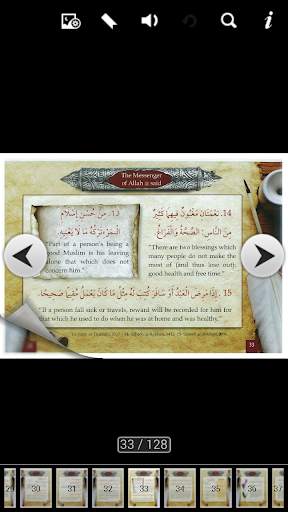 The Messenger
of Allah ﷺ said
13. مِنْ حُسْنِ إِسْلَامِ
الْمَرْءِ تَرْكُهُ مَا لَا يَعْنِيهِ.
"Part of a person's being a
good Muslim is his leaving
alone that which does not
concern him."
14. نِعْمَتَانِ مَغْبُونٌ فِيهِمَا كَثِيرٌ
مِنَ النَّاسِ: الصِّحَّةُ وَالْفَرَاغُ.
"There are two blessings which
many people do not make the
most of (and thus lose out):
good health and free time."
15. إِذَا مَرِضَ الْعَبْدُ أَوْ سَافَرَ كُتِبَ لَهُ مِثْلُ مَا كَانَ يَعْمَلُ مُقِيمًا صَحِيحًا.
"If a person fall sick or travels, reward will be recorded for him for
that which he used to do when he was at home and was healthy."
33
33 / 128
29
30
31
32
33
34
35
36
37